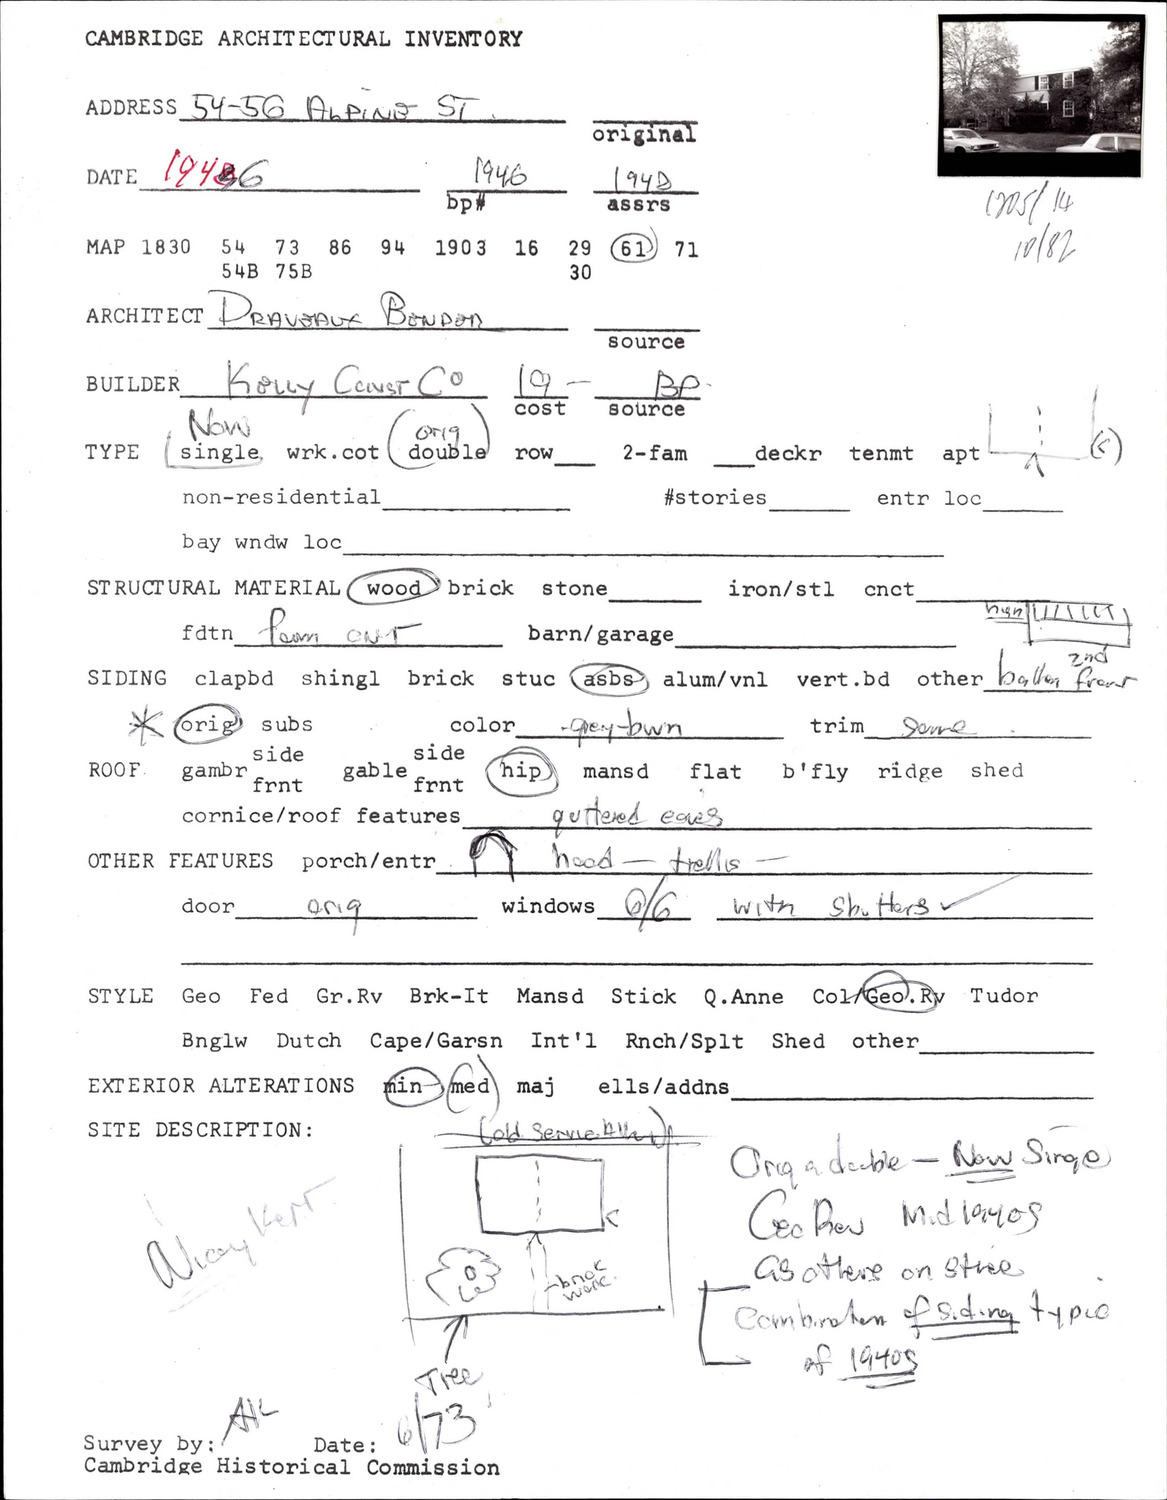 CAMBRIDGE ARCHITECTURAL INVENTORY
ADDRESS 54-56 ALPINE ST.
original
DATE 1946 1946 194
bp# assrs
1205/14
10/82
MAP 1830 54 73 86 94 1903 16 29 61 71
54B 75B 30
ARCHITECT
source
BUILDER Kelly Const Co 19 — BP.
cost source
Now orig
TYPE single wrk.cot double row 2-fam deckr tenmt apt
non-residential #stories entr loc
bay wndw loc
STRUCTURAL MATERIAL wood brick stone iron/stl cnct
fdtn barn/garage
2nd
SIDING clapbd shingl brick stuc asbs alum/vnl vert.bd other front
* orig subs color grey-bwn trim same
side side
ROOF gambr gable hip mansd flat b'fly ridge shed
frnt frnt
cornice/roof features guttered eaves
OTHER FEATURES porch/entr hood — trellis —
door orig windows 6/6 with shutters ✓
STYLE Geo Fed Gr.Rv Brk-It Mansd Stick Q.Anne Col/Geo.Rv Tudor
Bnglw Dutch Cape/Garsn Int'l Rnch/Splt Shed other
EXTERIOR ALTERATIONS min med maj ells/addns
SITE DESCRIPTION:
Orig a double — Now Single
Geo Rev Mid 1940s
as others on street
Combination of siding typic
of 1940s
Nicely Kept.
Tree
Survey by: Date: 6/73
Cambridge Historical Commission